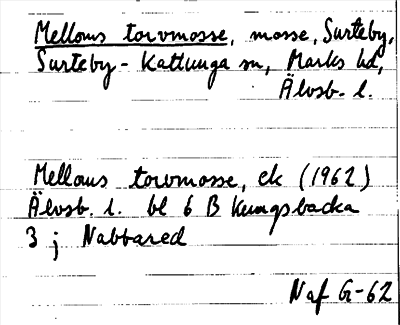 Melloms torvmosse, mosse, Surteby,
Surteby-Kattunga sn, Marks hd,
Älvsb. l.
Melloms torvmosse, ek (1962)
Älvsb. l. bl 6 B Kungsbacka
3 j Nabbared
Naf G-62